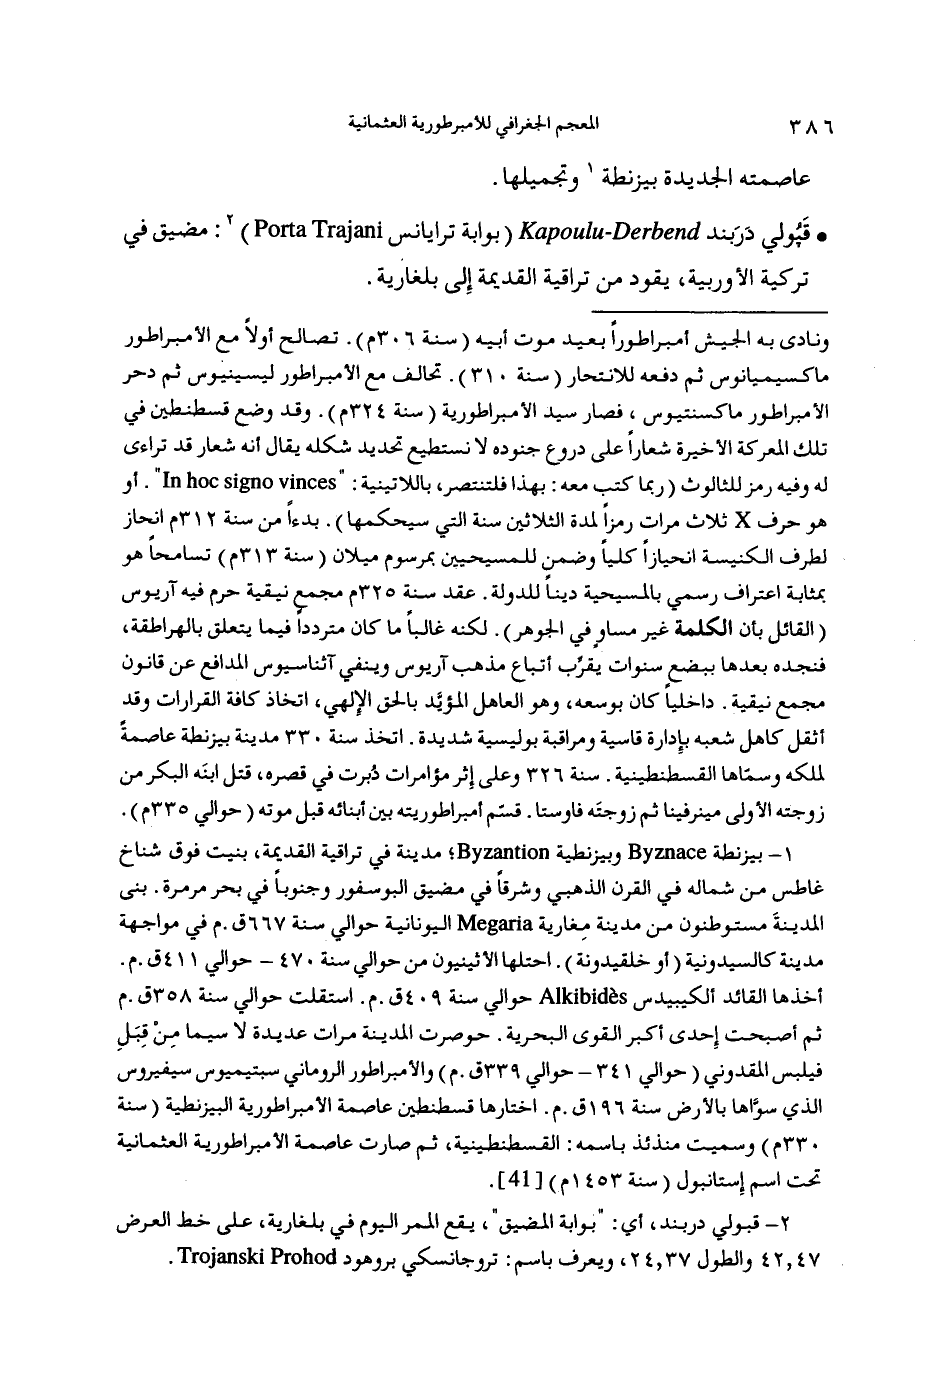 ٣٨٦ المعجم الجغرافي للامبرطورية العثمانية
عاصمته الجديدة بيزنطة ١ وتجميلها.
• قَپُولي دَرَبند Kapoulu-Derbend (بوابة ترايانس Porta Trajani) ٢ : مضيق في
تركية الأوربية، يقود من تراقية القديمة إلى بلغارية.
ونادى به الجيش أمبراطوراً بعيد موت أبيه (سنة ٣٠٦م). تصالح أولاً مع الامبراطور
ماكسيميانوس ثم دفعه للانتحار (سنة ٣١٠). تحالف مع الامبراطور ليسينيوس ثم دحر
الامبراطور ماكسنتيوس ، فصار سيد الامبراطورية (سنة ٣٢٤م). وقد وضع قسطنطين في
تلك المعركة الأخيرة شعاراً على دروع جنوده لا نستطيع تحديد شكله يقال أنه شعار قد تراءى
له وفيه رمز للثالوث (ربما كتب معه: بهذا فلتنتصر، باللاتينية: "In hoc signo vinces". أو
هو حرف X ثلاث مرات رمزاً لمدة الثلاثين سنة التي سيحكمها). بدءاً من سنة ٣١٢م انحاز
لطرف الكنيسة انحيازاً كلياً وضمن للمسيحيين بمرسوم ميلان (سنة ٣١٣م) تسامحاً هو
بمثابة اعتراف رسمي بالمسيحية ديناً للدولة. عقد سنة ٣٢٥م مجمع نيقية حرم فيه آريوس
(القائل بأن الكلمة غير مساوٍ في الجوهر). لكنه غالباً ما كان متردداً فيما يتعلق بالهراطقة،
فنجده بعدها ببضع سنوات يقرّب أتباع مذهب آريوس وينفي آثناسيوس المدافع عن قانون
مجمع نيقية. داخلياً كان بوسعه، وهو العاهل المؤيَّد بالحق الإلهي، اتخاذ كافة القرارات وقد
أثقل كاهل شعبه بإدارة قاسية ومراقبة بوليسية شديدة. اتخذ سنة ٣٣٠ مدينة بيزنطة عاصمةً
لملكه وسمّاها القسطنطينية. سنة ٣٢٦ وعلى إثر مؤامرات دُبرت في قصره، قتل ابنَه البكر من
زوجته الأولى مينرفينا ثم زوجتَه فاوستا. قسّم أمبراطوريته بين أبنائه قبل موته (حوالي ٣٣٥م).
١- بيزنطة Byznace وبيزنطية Byzantion؛ مدينة في تراقية القديمة، بنيت فوق شناخ
غاطس من شماله في القرن الذهبي وشرقاً في مضيق البوسفور وجنوباً في بحر مرمرة. بنى
المدينةَ مستوطنون من مدينة مِغارية Megaria اليونانية حوالي سنة ٦٦٧ق.م في مواجهة
مدينة كالسيدونية (أو خلقيدونة). احتلها الأثينيون من حوالي سنة ٤٧٠ - حوالي ٤١١ق.م.
أخذها القائد ألكيبيدس Alkibidès حوالي سنة ٤٠٩ق.م. استقلت حوالي سنة ٣٥٨ق.م
ثم أصبحت إحدى أكبر القوى البحرية. حوصرت المدينة مرات عديدة لا سيما مِنْ قِبَلِ
فيليس المقدوني (حوالي ٣٤١ - حوالي ٣٣٩ق.م) والامبراطور الروماني سبتيميوس سيفيروس
الذي سوَّاها بالأرض سنة ١٩٦ق.م. اختارها قسطنطين عاصمة الامبراطورية البيزنطية (سنة
٣٣٠م) وسميت منذئذ باسمه: القسطنطينية، ثم صارت عاصمة الامبراطورية العثمانية
تحت اسم إستانبول (سنة ١٤٥٣م) [41].
٢- قبولي دربند، أي: "بوابة المضيق"، يقع الممر اليوم في بلغارية، على خط العرض
٤٢,٤٧ والطول ٢٤,٣٧، ويعرف باسم: تروجانسكي بروهود Trojanski Prohod.